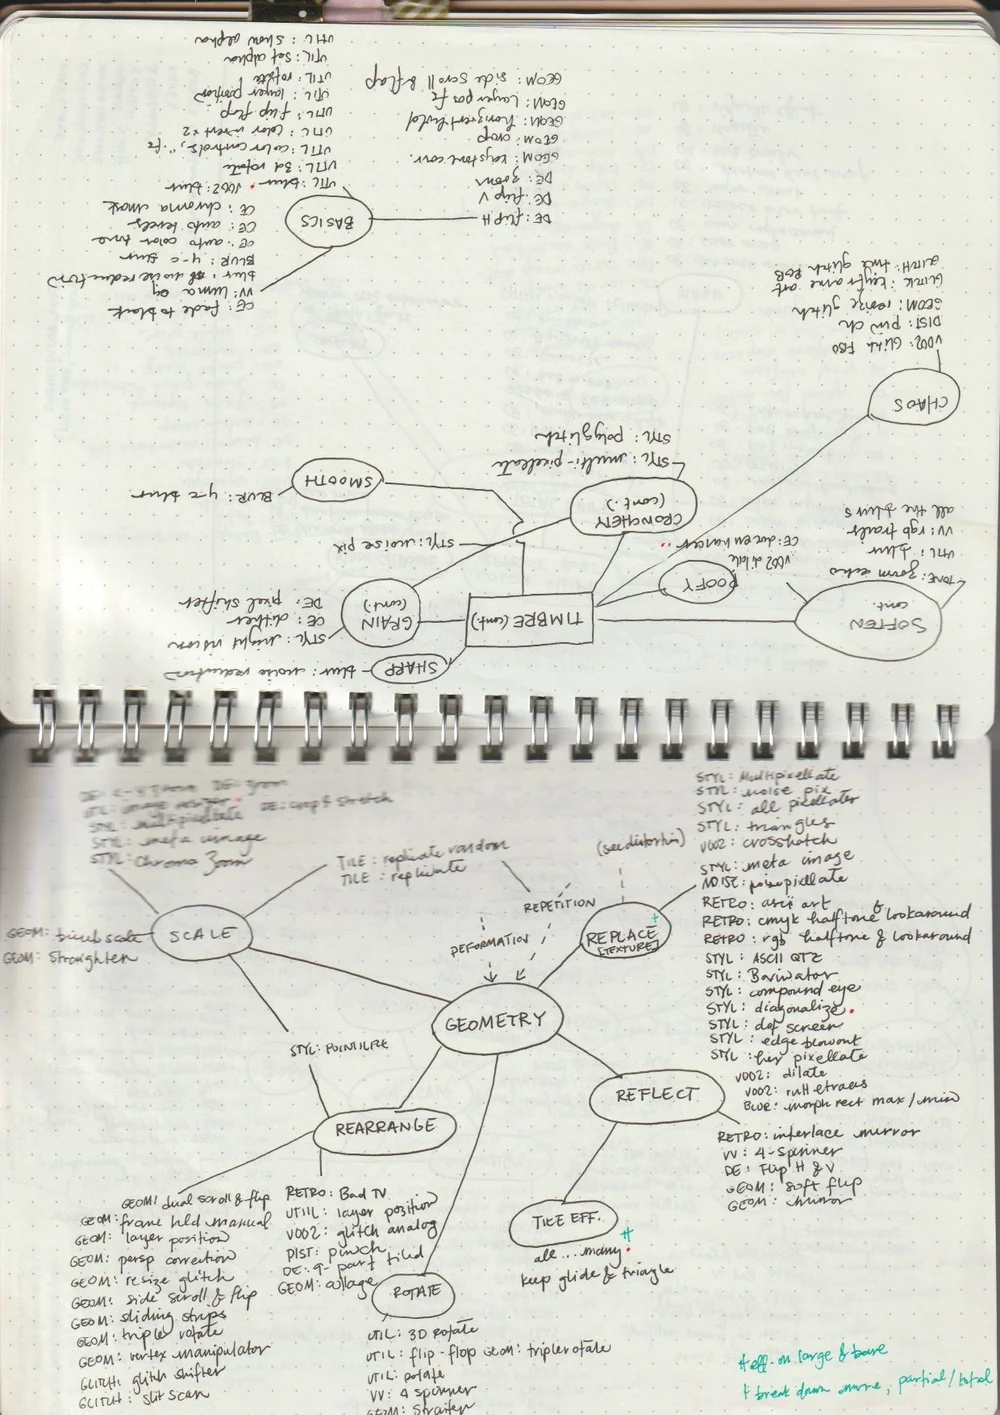 UTIL: show alpha
UTIL: set alpha
UTIL: rotate
UTIL: layer position
UTIL: flip flop
UTIL: color invert x2
UTIL: color controls, ", fz
UTIL: 3d rotate
UTIL: blur · V002: blur
CE: chroma mask
CE: auto levels
CE: auto color tone
BLUR: y-c blur
blur: noise reduction
VV: luma
CE: fade to black
BASICS
GEOM: side scroll & flap
GEOM: Layer pos fz
GEOM: horizvert hold
GEOM: crop
GEOM: keystone corr.
DE: zoom
DE: flip V
DE: flip H
GLITCH: twk glitch RGB
GLITCH: keyframe art
GEOM: resize glitch
DIST: pinch
V002: Glitch FBO
CHAOS
STYL: polyglitch
STYL: multi-pixellate
CRONCHEY
(cont.)
SMOOTH
BLUR: y-c blur
STYL: noise pix
all the blurs
VV: rgb trails
UTIL: blur
TONE: zoom echo
SOFTEN
cont.
V002 dilate
POOFY
TIMBRE (cont)
GRAIN
(cont.)
DE: pixel shifter
CE: dither
STYL: night vision
SHARP
blur: noise reduction
DE: zoom
UTIL: image resizer
DE: crop & stretch
STYL: multipixellate
STYL: meta image
STYL: Chroma Zoom
TILE: replicate random
TILE: replicate
SCALE
GEOM: bicub scale
GEOM: Straighten
(see distortion)
REPETITION
DEFORMATION
REPLACE
[TEXTURE]
+
STYL: Multipixellate
STYL: noise pix
STYL: all pixellates
STYL: triangles
V002: crosshatch
STYL: meta image
NOISE: noisepixellate
RETRO: ascii art
RETRO: cmyk halftone & lookaround
RETRO: rgb halftone & lookaround
STYL: ASCII QTZ
STYL: Bariwator
STYL: compound eye
STYL: diagonalize
STYL: dot screen
STYL: edge blowout
STYL: hex pixellate
V002: dilate
V002: rutt etraes
BLUR: morph rect max/min
GEOMETRY
STYL: POINTILIZE
REARRANGE
REFLECT
RETRO: interlace mirror
VV: 4-Spinner
DE: Flip H & V
GEOM: soft flip
GEOM: mirror
GEOM: dual scroll & flip
GEOM: frame held manual
GEOM: layer position
GEOM: persp correction
GEOM: resize glitch
GEOM: side scroll & flip
GEOM: sliding strips
GEOM: triple rotate
GEOM: vertex manipulator
GLITCH: glitch shifter
GLITCH: slit scan
RETRO: Bad TV
UTIL: layer position
V002: glitch analog
DIST: pinch
DE: 9-part tiled
GEOM: collage
ROTATE
UTIL: 3D rotate
UTIL: flip-flop GEOM: triple rotate
UTIL: rotate
VV: 4 spinner
GEOM: Straiten
TILE EFF.
all ... many
keep glide & triangle
eff. on large & bare
+ break down more, partial/total